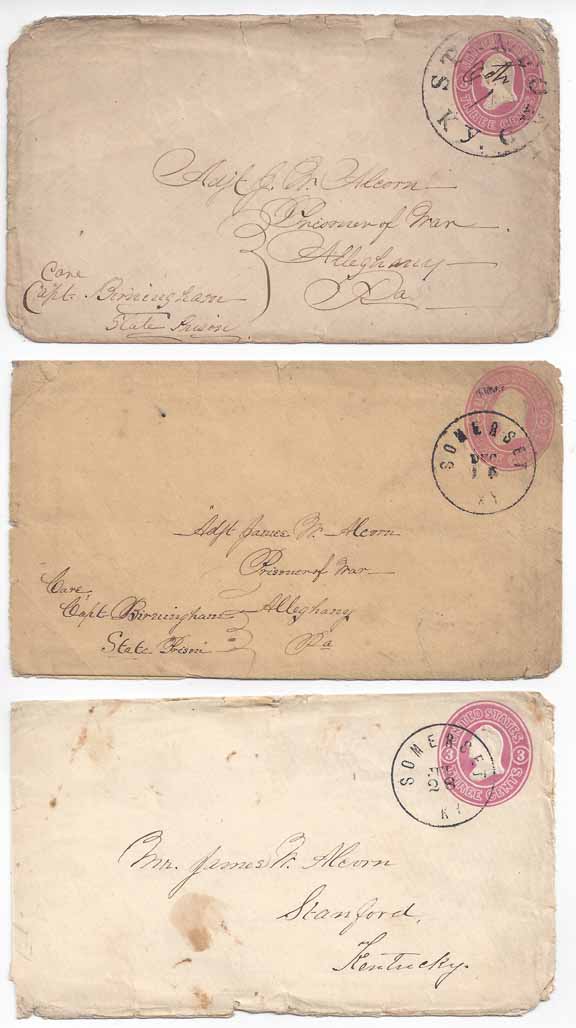 STANFORD
KY.
6th
THREE CENTS
Adjt J. W. Alcorn
Prisoner of War
Alleghany
Pa
Care
Capt. Birningham
State Prison
SOMERSET
DEC
KY
Adjt James W. Alcorn
Prisoner of War
Care
Capt Birningham Alleghany
State Prison Pa
UNITED STATES
3 3
THREE CENTS
SOMERSET
KY
Mr. James W. Alcorn
Stanford,
Kentucky.